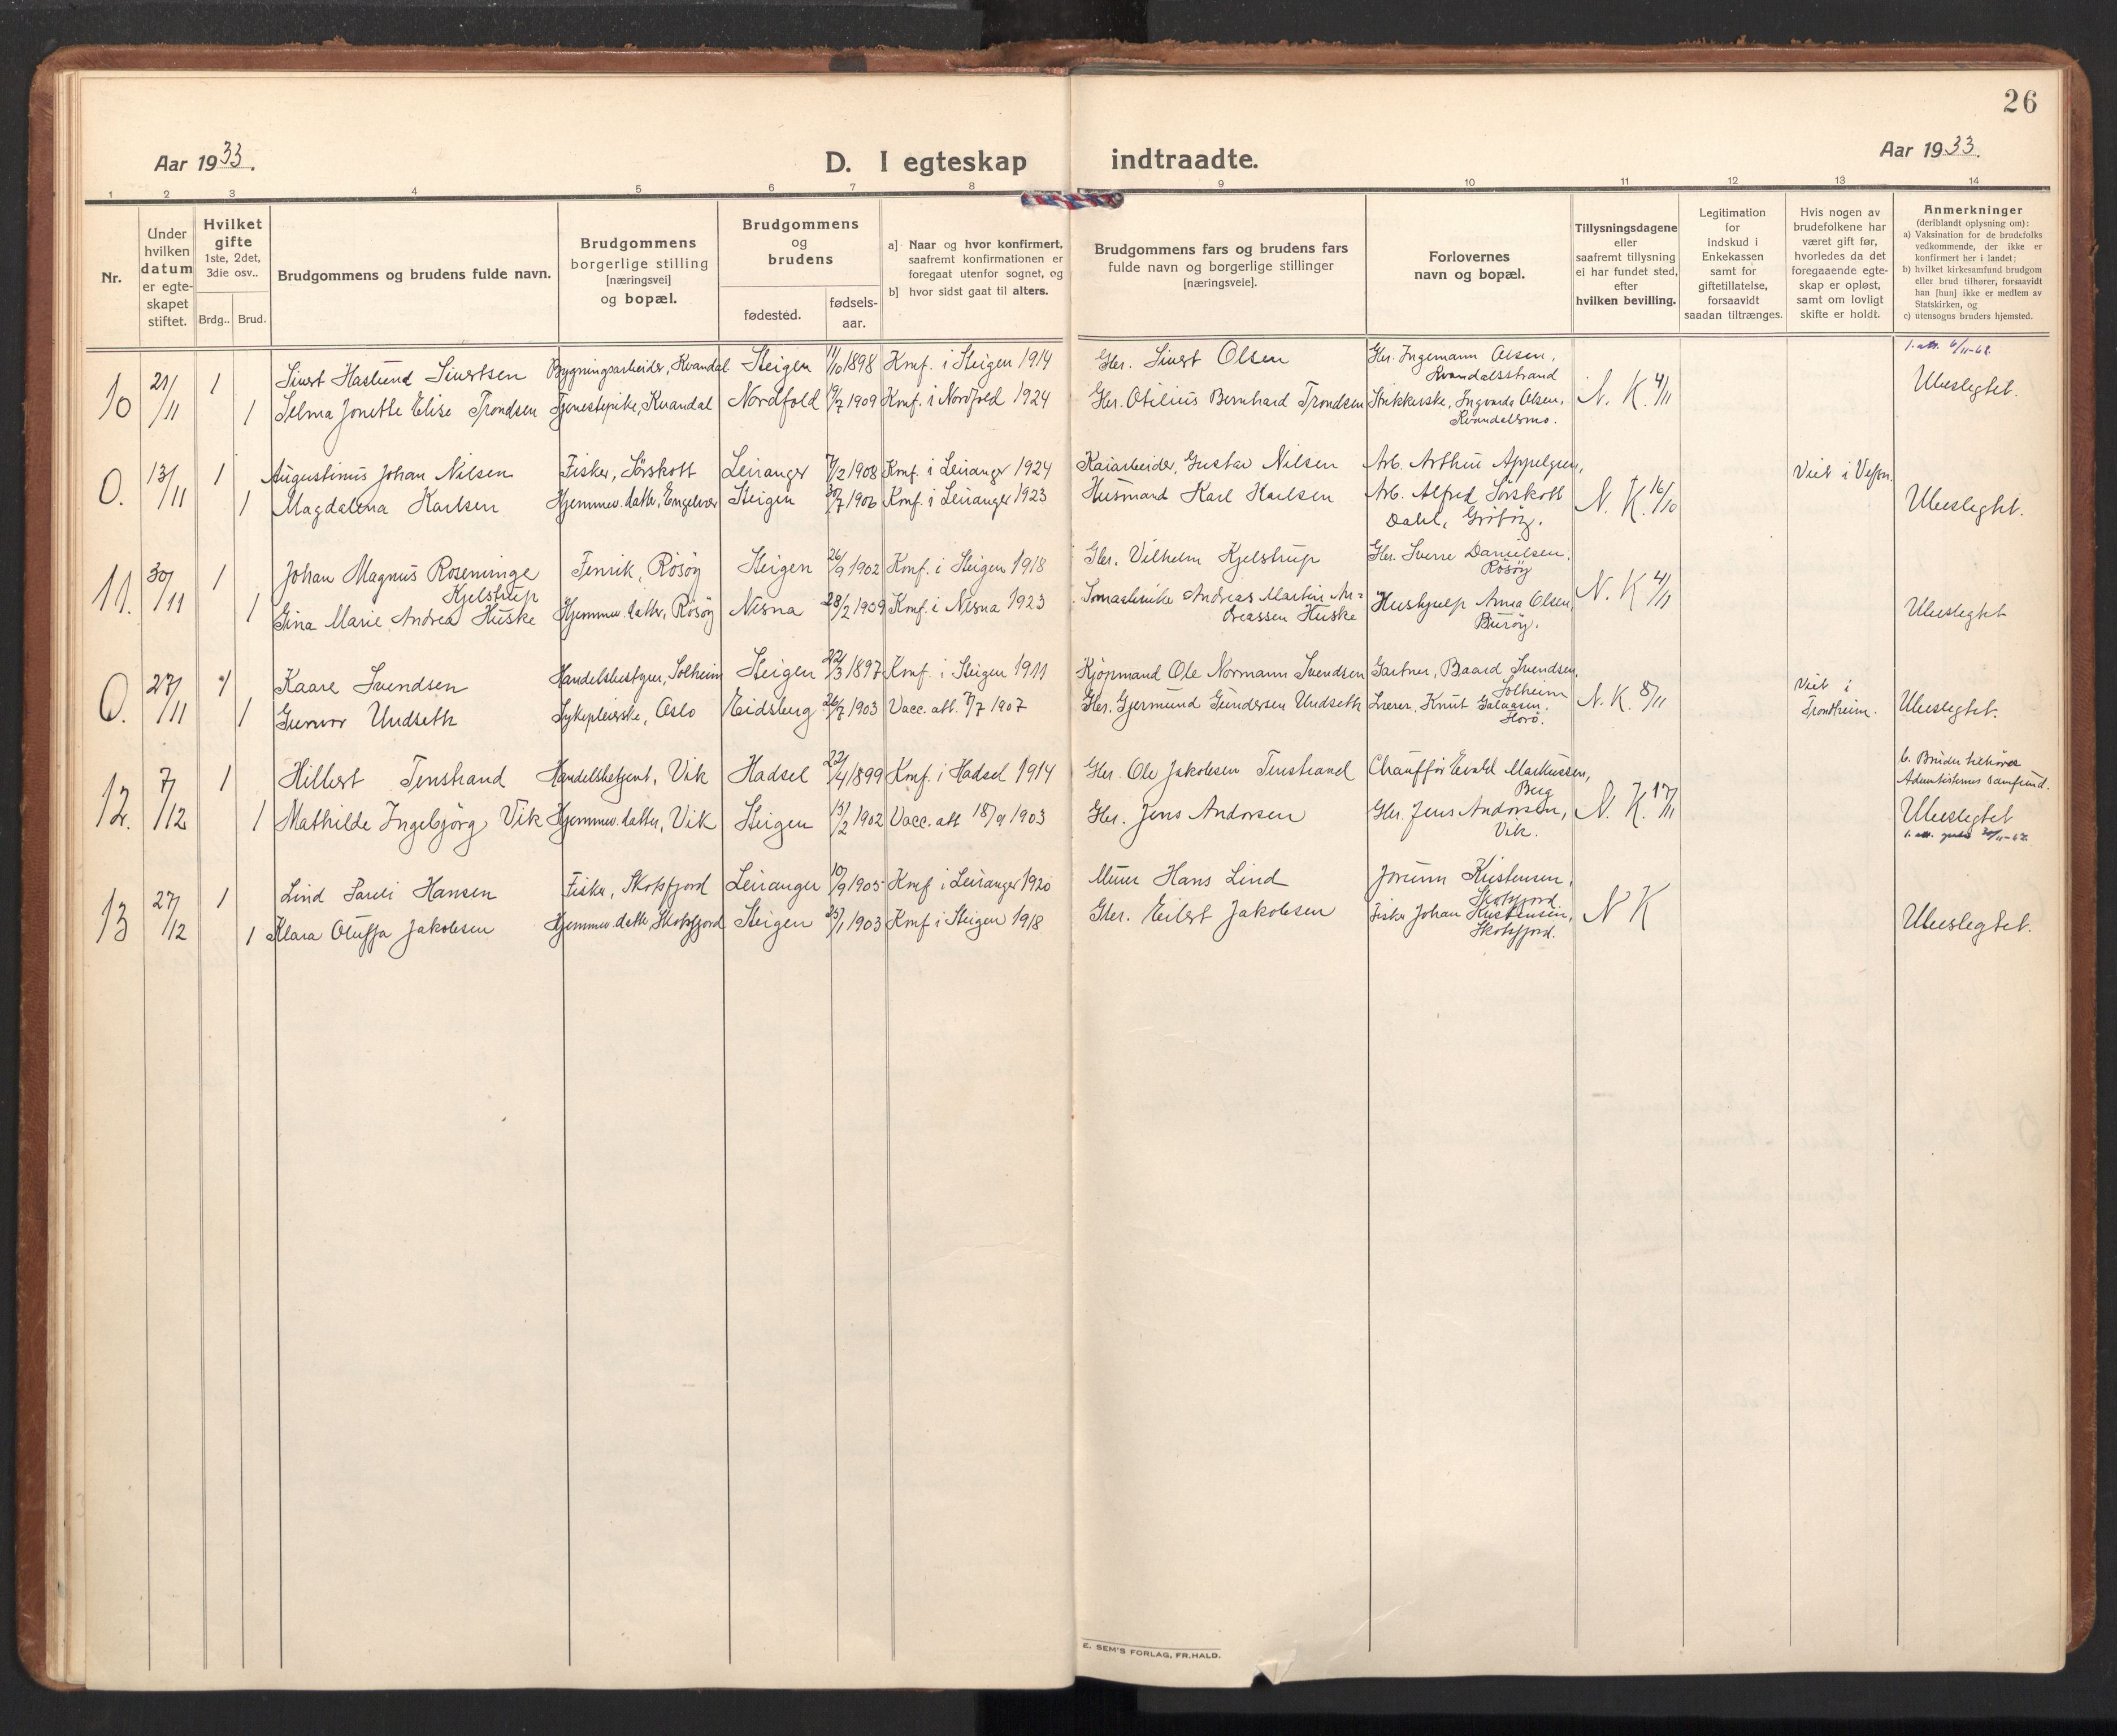 26
Aar 1933.
D. I egteskap indtraadte.
Aar 1933.
1 2 3 4 5 6 7 8 9 10 11 12 13 14
Nr.
Under
hvilken
datum
er egte-
skapet
stiftet.
Hvilket
gifte
1ste, 2det,
3die osv..
Brdg.. Brud.
Brudgommens og brudens fulde navn.
Brudgommens
borgerlige stilling
[næringsvei]
og bopæl.
Brudgommens
og
brudens
fødested.
fødsels-
aar.
a] Naar og hvor konfirmert,
saafremt konfirmationen er
foregaat utenfor sognet, og
b] hvor sidst gaat til alters.
Brudgommens fars og brudens fars
fulde navn og borgerlige stillinger
[næringsveie].
Forlovernes
navn og bopæl.
Tillysningsdagene
eller
saafremt tillysning
ei har fundet sted,
efter
hvilken bevilling.
Legitimation
for
indskud i
Enkekassen
samt for
giftetillatelse,
forsaavidt
saadan tiltrænges.
Hvis nogen av
brudefolkene har
været gift før,
hvorledes da det
foregaaende egte-
skap er opløst,
samt om lovligt
skifte er holdt.
Anmerkninger
(deriblandt oplysning om):
a) Vaksination for de brudefolks
vedkommende, der ikke er
konfirmert her i landet;
b) hvilket kirkesamfund brudgom
eller brud tilhører, forsaavidt
han [hun] ikke er medlem av
Statskirken, og
c) utensogns bruders hjemsted.
10 21/11 1 Sivert Haslund Sivertsen Bygningsarbeider, Kvandal Steigen 11/10 1898 Konf. i Steigen 1914 Gbr. Sivert Olsen Gbr. Ingemann Olsen,
Kvandalsstrand
1 Selma Jonette Elise Trondsen Tjenestepike, Kvandal Nordfold 19/7 1909 Konf. i Nordfold 1924 Gbr. Otilius Bernhard Trondsen Strikkerske, Ingvarda Olsen,
Kvandalsmo.
N. K. 4/11 Ubeslegtet.
0. 13/11 1 Augustinus Johan Nilsen Fisker, Sørskott Leiranger 7/2 1908 Konf. i Leiranger 1924 Kaiarbeider, Gustav Nilsen Arb. Arthur Appelgren,
1 Magdalena Karlsen Hjemmev. datter, Engelvær Steigen 30/7 1906 Konf. i Leiranger 1923 Husmand Karl Karlsen Arb. Alfred Sørskott
Dahl, Grøtøy.
N. K. 16/10 Viet i Vefsn. Ubeslegtet.
11. 30/11 1 Johan Magnus Rosenvinge
Kjelstrup
Fenrik, Røsøy Steigen 26/9 1902 Konf. i Steigen 1918 Gbr. Vilhelm Kjelstrup Gbr. Sverre Danielsen.
Røsøy
1 Gina Marie Andrea Huske Hjemmev. datter, Røsøy Nesna 28/2 1909 Konf. i Nesna 1923 Smaabruker Andreas Martin An-
dreassen Huske
Hushjælp Anna Olsen,
Burøy.
N. K 4/11 Ubeslegtet
0. 27/11 1 Kaare Svendsen Handelsbestyrer, Solheim Steigen 22/3 1897 Konf. i Steigen 1911 Kjøpmand Ole Normann Svendsen Gartner, Baard Svendsen,
Solheim
1 Gunvor Undseth Sykepleierske, Oslo Eidsberg 26/7 1903 Vacc. att. 7/7 1907 Gbr. Gjermund Gundersen Undseth Lærer, Knut Galaasen.
N. K. 8/11 Viet i
Trondheim. Ubeslegtet.
12. 7/12 1 Hilbert Tenstrand Handelsbetjent, Vik Hadsel 22/4 1899 Konf. i Hadsel 1914 Gbr. Ole Jakobsen Tenstrand Chauffør Evald Markussen,
Berg
1 Mathilde Ingebjørg Vik Hjemmev. datter, Vik Steigen 15/2 1902 Vacc. att 18/9 1903 Gbr. Jens Andorsen Gbr. Jens Andorsen,
Vik.
N. K. 17/11 b. Bruden tilhører
Adventisternes samfund.
Ubeslegtet
13 27/12 1 Lind Pareli Hansen Fisker, Skotsfjord Leiranger 10/9 1905 Konf i Leiranger 1920 Murer Hans Lind Jorunn Kristensen,
Skotsfjord
1 Klara Oluffa Jakobsen Hjemmev. datter, Skotsfjord Steigen 25/1 1903 Konf i Steigen 1918 Gbr. Eilert Jakobsen Fisker Johan Kristensen,
Skotsfjord.
N K Ubeslegtet.
E. SEM'S FORLAG, FR.HALD.